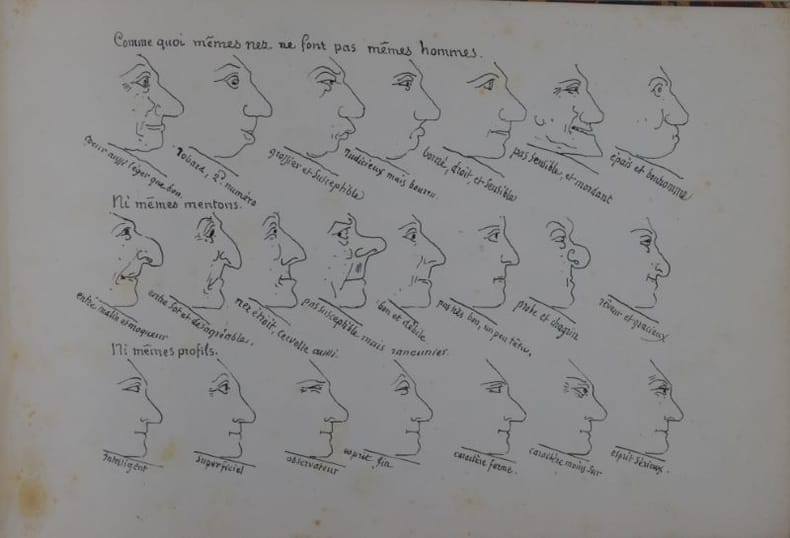 Comme quoi mêmes nez ne font pas mêmes hommes.
coeur aussi léger que bon
Jobard, 1r. numéro
grossier et susceptible
judicieux mais bourru.
borné, droit et sensible
pas sensible, et mordant
épais et bonhomme
Ni mêmes mentons.
entre malin et moqueur
entre sot et désagréable.
nez étroit, cervelle aussi.
pas susceptible mais rancunier.
bon et débile
pas très bon, un peu têtu.
probe et chagrin
rêveur et gracieux
Ni mêmes profils.
Intelligent
superficiel
observateur
esprit fin
caractère ferme.
caractère moins sur
esprit sérieux.